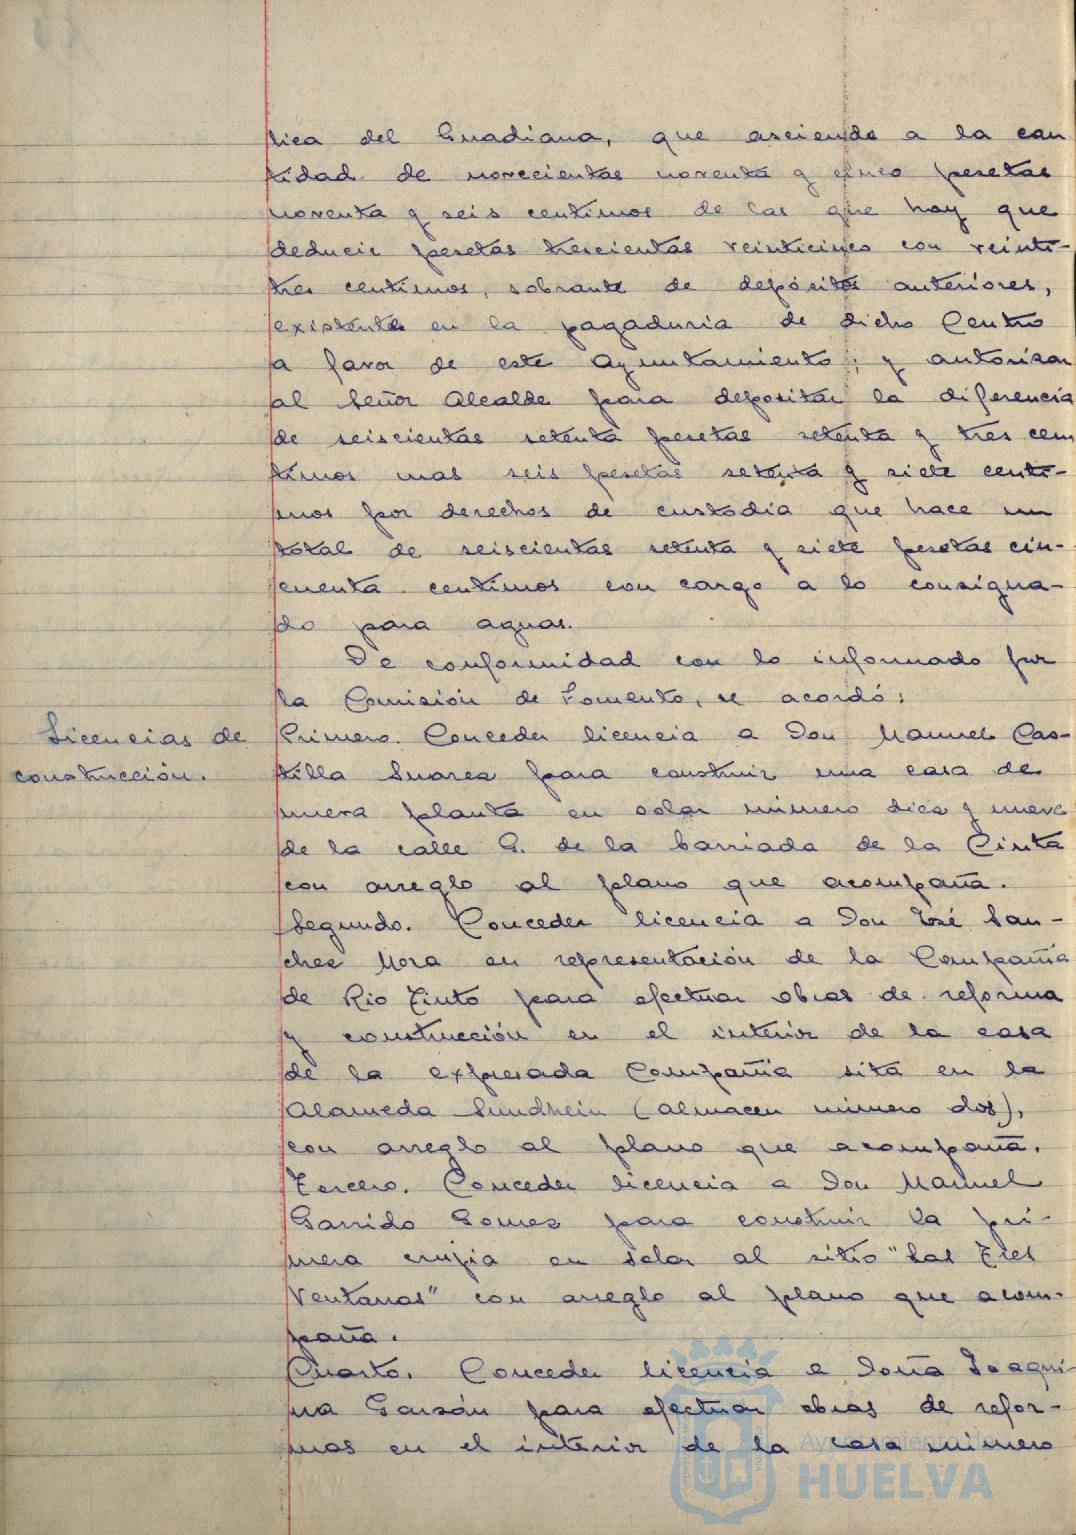 lica del Guadiana, que asciende a la can
tidad de novecientas noventa y cinco pesetas
noventa y seis centimos de las que hay que
deducir pesetas trescientas veinticinco con veinti-
tres centimos, sobrante de depósitos anteriores,
existente en la pagaduria de dicho Centro
a favor de este Ayuntamiento; y autorizar
al Señor Alcalde para depositar la diferencia
de seiscientas setenta pesetas setenta y tres cen
timos mas seis pesetas setenta y siete centi-
mos por derechos de custodia que hace un
total de seiscientas setenta y siete pesetas cin-
cuenta centimos con cargo a lo consigna-
do para aguas.
De conformidad con lo informado por
la Comisión de Fomento, se acordó:
Licencias de
construcción.
Primero. Conceder licencia a Don Manuel Cas-
tilla Suarez para construir una casa de
nueva planta en solar número diez y nueve
de la calle G. de la barriada de la Cinta
con arreglo al plano que acompaña.
Segundo. Conceder licencia a Don José San-
chez Mora en representación de la Compañia
de Rio Tinto para efectuar obras de reforma
y construcción en el interior de la casa
de la expresada Compañia sita en la
Alameda Sundhein (almacen número dos),
con arreglo al plano que acompaña.
Tercero. Conceder licencia a Don Manuel
Garrido Gomez para construir la pri-
mera crujia en solar al sitio "Las Tres
Ventanas" con arreglo al plano que acom-
paña.
Cuarto. Conceder licencia a Doña Joaqui-
na Garzón para efectuar obras de refor-
mas en el interior de la casa número
Ayuntamiento de
HUELVA